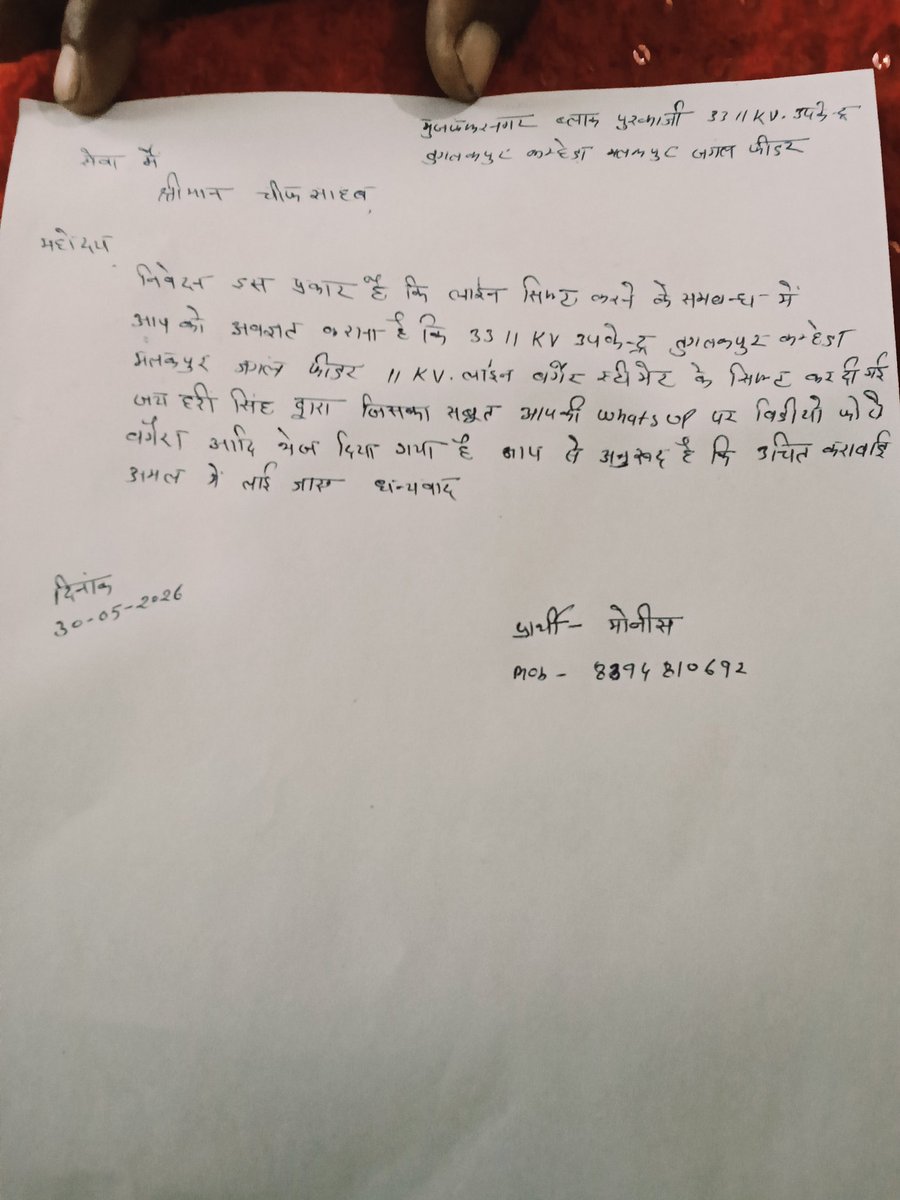 मुजफ्फरनगर ब्लाक पुरकाजी 33 11 KV. उपकेन्द्र
तुगलकपुर कम्हेडा मलकपुर जंगल फीडर
सेवा में
श्रीमान चीफ साहब,
महोदय
निवेदन इस प्रकार है कि लाईन सिफ्ट करने के समबन्ध में
आप को अवगत कराना है कि 33 11 KV उपकेन्द्र तुगलकपुर कम्हेडा
मलकपुर जंगल फीडर 11 KV. लाईन वगैर स्टीमेट के सिफ्ट कर दी गई
जय हरी सिंह द्वारा जिसका सबूत आपकी whats up पर विडीयो फोटो
वगैरा आदि भेज दिया गया है आप से अनुरूद है कि उचित करावाई
अमल में लाई जाए धन्यवाद
दिनांक
30-05-2026
प्रार्थी - मोनीस
Mob - 8394810692